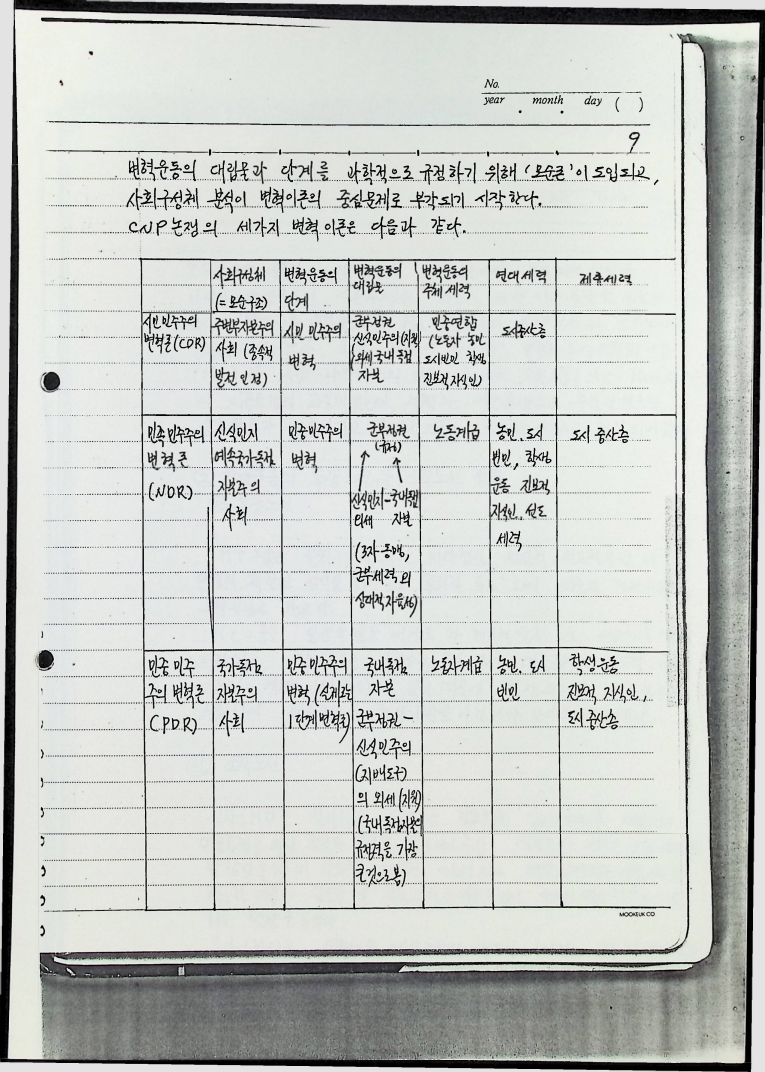 No.
year . month . day ( )
9
변혁운동의 대립물과 단계를 과학적으로 규정하기 위해 '모순론'이 도입되고,
사회구성체 분석이 변혁이론의 중심문제로 부각되기 시작한다.
CNP논쟁의 세가지 변혁이론은 다음과 같다.
사회구성체
(=모순구조)
변혁운동의
단계
변혁운동의
대립물
변혁운동의
주체세력
연대세력
제휴세력
시민민주주의
변혁론(CDR)
주변부자본주의
사회 (종속적
발전 인정)
시민 민주주의
변혁
군부정권
신식민주의(지원)
외세 국내 독점
자본
민중연합
(노동자 농민
도시빈민 학생
진보적 지식인)
도시중산층
민족민주주의
변혁론
(NDR)
신식민지
예속국가독점
자본주의
사회
민중민주주의
변혁
군부정권
(규정)
신식민지-국내독점
외세 자본
(3자 동맹,
군부세력의
상대적자율성)
노동계급
농민, 도시
빈민, 학생
운동 진보적
지식인, 선도
세력
도시 중산층
민중 민주
주의 변혁론
(PDR)
국가독점
자본주의
사회
민중민주주의
변혁 (실제로는
1단계변혁론)
국내독점
자본
군부정권-
신식민주의
(지배도구)
의 외세 (지원)
(국내독점자본의
규정력을 가장
큰것으로봄)
노동자계급
농민, 도시
빈민
학생운동
진보적 지식인,
도시중산층
MOOKEUK CO